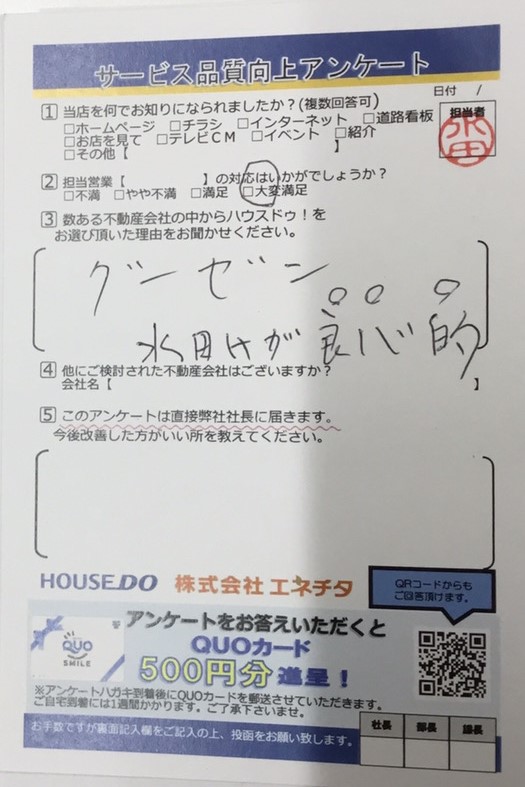 サービス品質向上アンケート
日付 /
担当者
水田
1 当店を何でお知りになられましたか?(複数回答可)
□ホームページ □チラシ □インターネット □道路看板
□お店を見て □テレビCM □イベント □紹介
□その他【 】
2 担当営業【 】の対応はいかがでしょうか?
□不満 □やや不満 □満足 □大変満足
3 数ある不動産会社の中からハウスドゥ!を
お選び頂いた理由をお聞かせください。
グーゼン
水田サンが良心的
4 他にご検討された不動産会社はございますか?
会社名【 】
5 このアンケートは直接弊社社長に届きます。
今後改善した方がいい所を教えてください。
HOUSE DO 株式会社 エネチタ
QRコードからも
ご回答頂けます。
アンケートをお答えいただくと
QUOカード
500円分 進呈!
QUO
SMILE
※アンケートハガキ到着後にQUOカードを郵送させていただきます。
ご自宅到着には1週間かかります。ご了承下さいませ。
お手数ですが裏面記入欄をご記入の上、投函をお願い致します。
社長 部長 課長